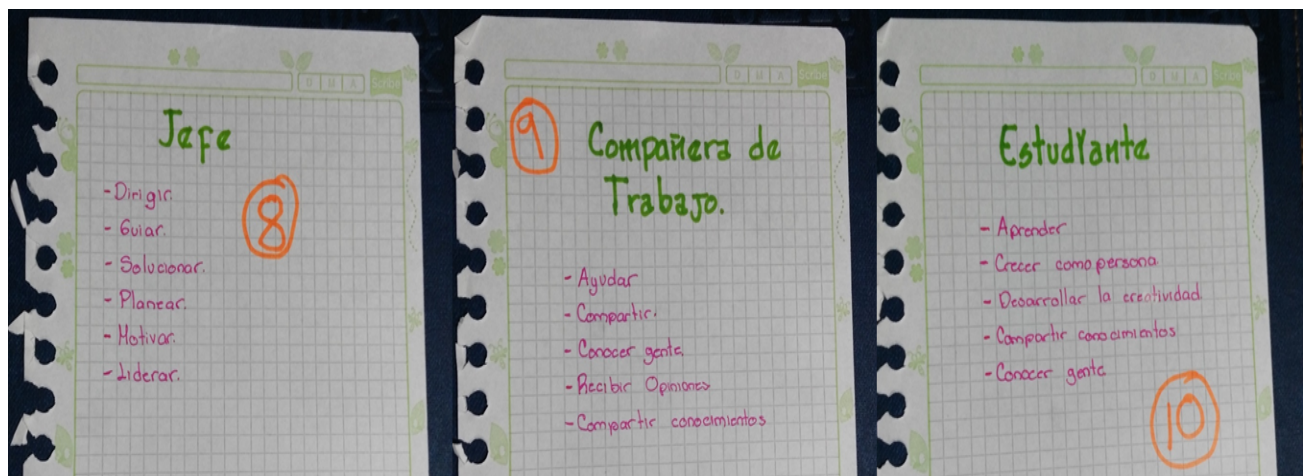 D M A
Scribe
Jefe
8
- Dirigir.
- Guiar.
- Solucionar.
- Planear.
- Motivar.
- Liderar.
D M A
Scribe
9
Compañera de
Trabajo.
- Ayudar
- Compartir.
- Conocer gente.
- Recibir Opiniones
- Compartir conocimientos
D M A
Scribe
Estudiante
- Aprender
- Crecer como persona
- Desarrollar la creatividad
- Compartir conocimientos
- Conocer gente
10